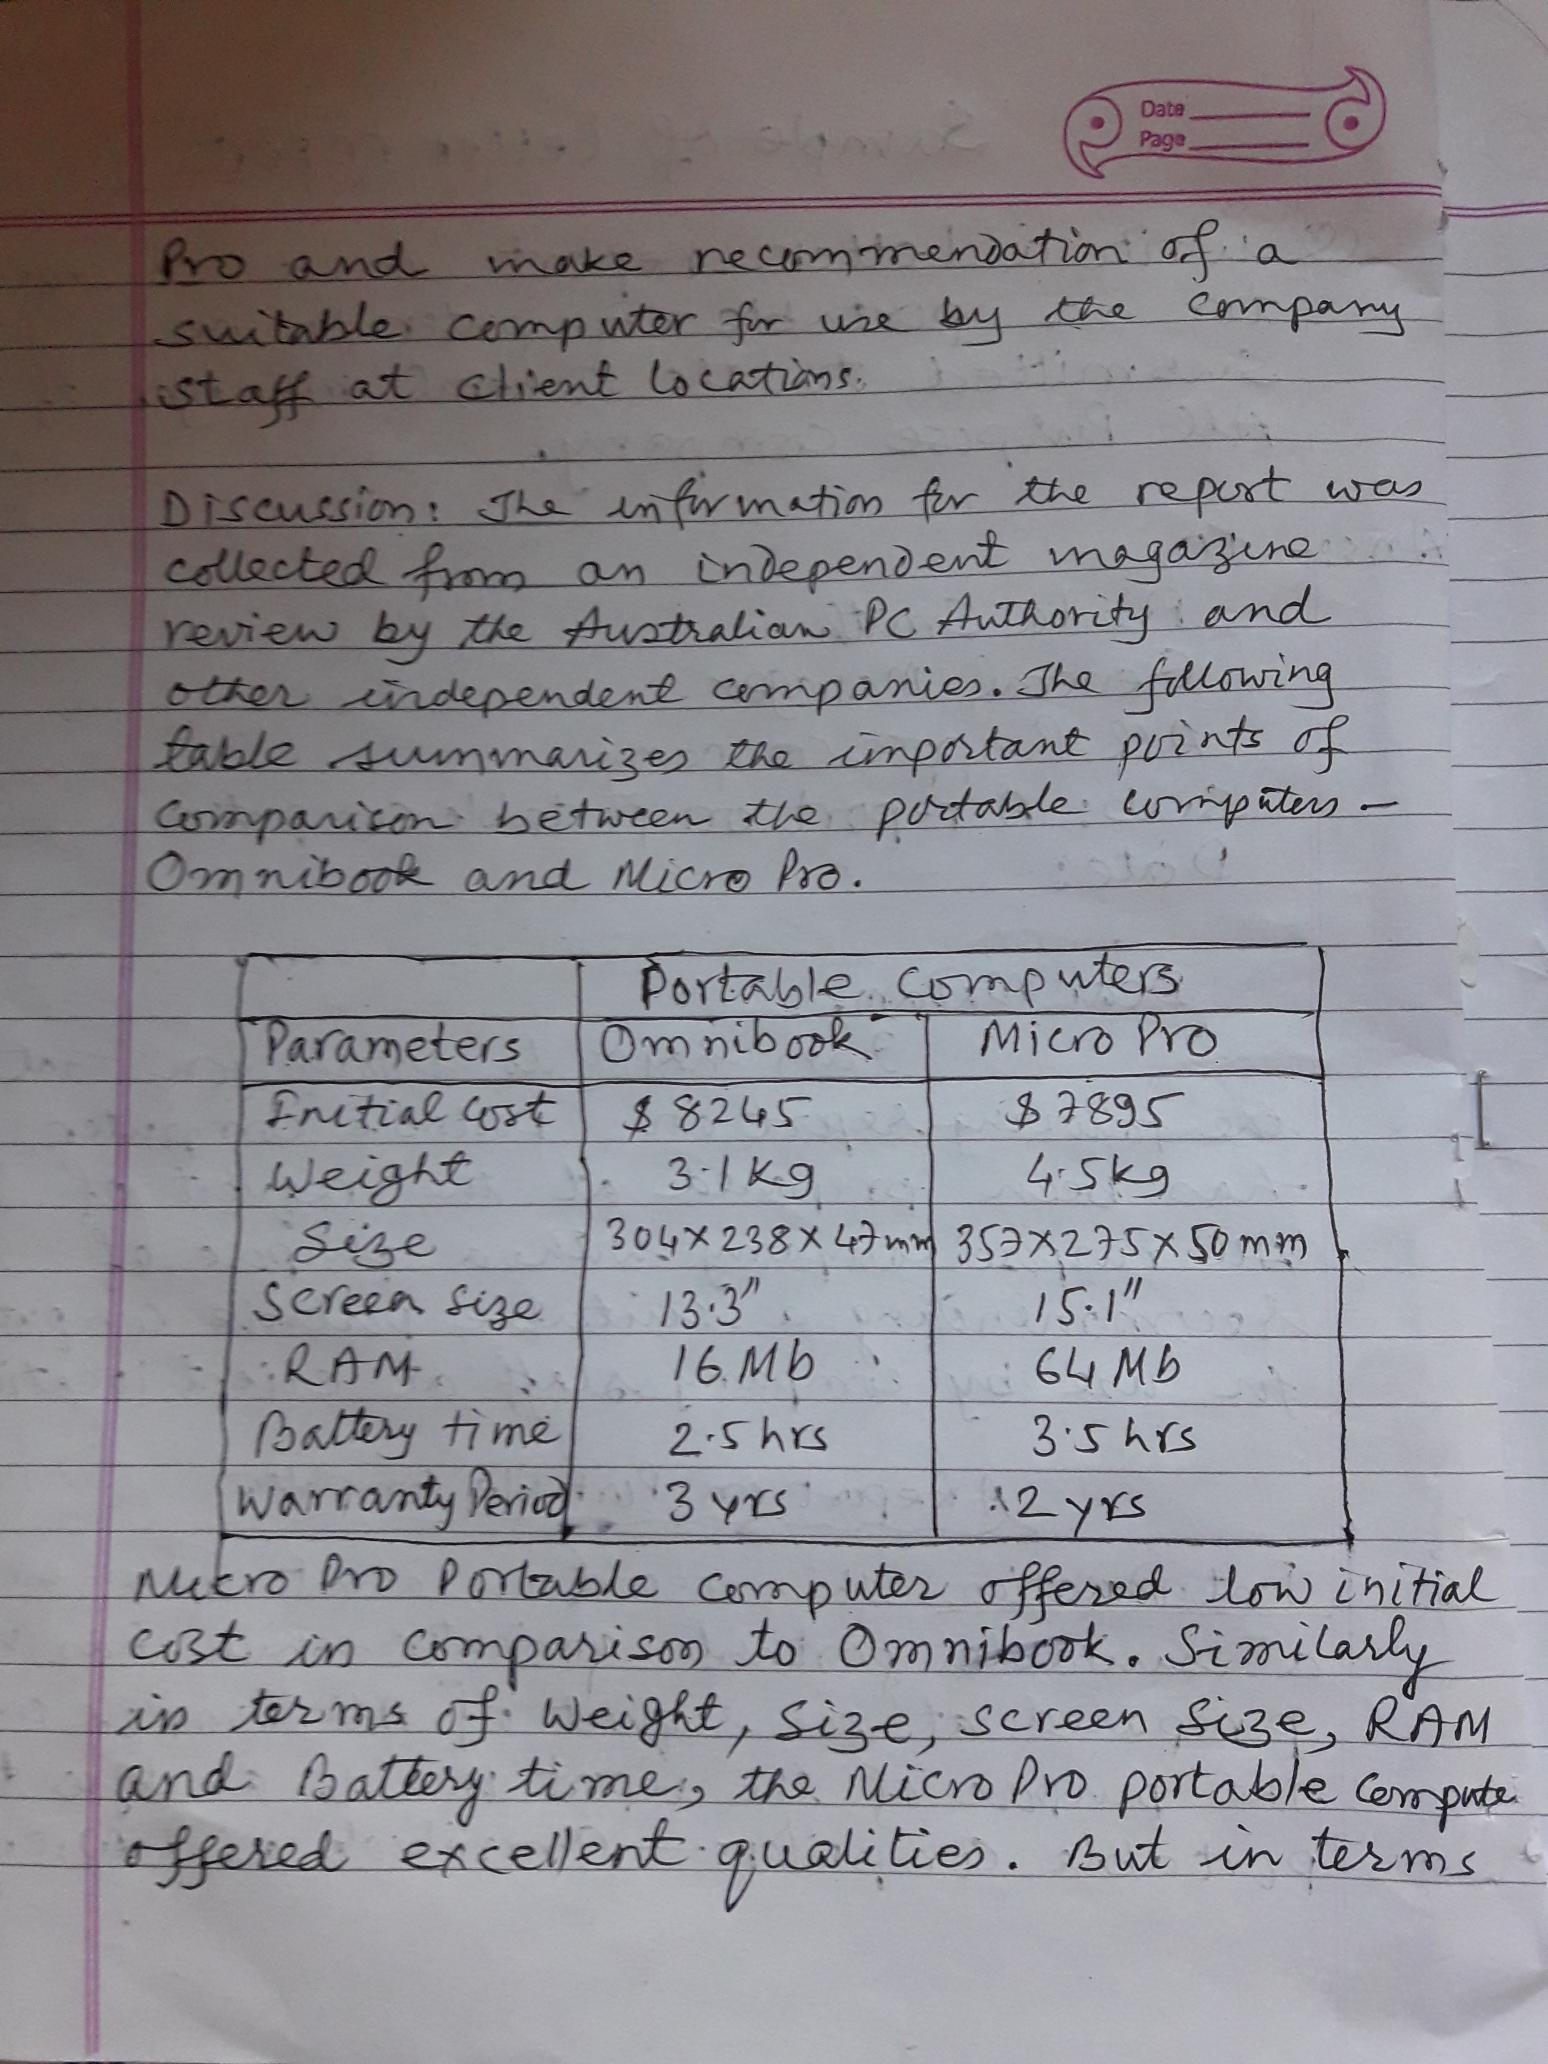 Date
Page
Pro and make recommendation of a
suitable computer for use by the company
staff at client locations.
Discussion: The information for the report was
collected from an independent magazine
review by the Australian PC Authority and
other independent companies. The following
table summarizes the important points of
comparison between the portable computers –
Omnibook and Micro Pro.
Portable Computers
Parameters Omnibook Micro Pro
Initial cost $8245 $7895
Weight 3.1 kg 4.5 kg
Size 304 x 238 x 47 mm 357 x 275 x 50 mm
Screen size 13.3" 15.1"
RAM 16 Mb 64 Mb
Battery time 2.5 hrs 3.5 hrs
Warranty Period 3 yrs 2 yrs
Micro Pro Portable computer offered low initial
cost in comparison to Omnibook. Similarly
in terms of Weight, Size, screen Size, RAM
and Battery time, the Micro Pro portable compute
offered excellent qualities. But in terms